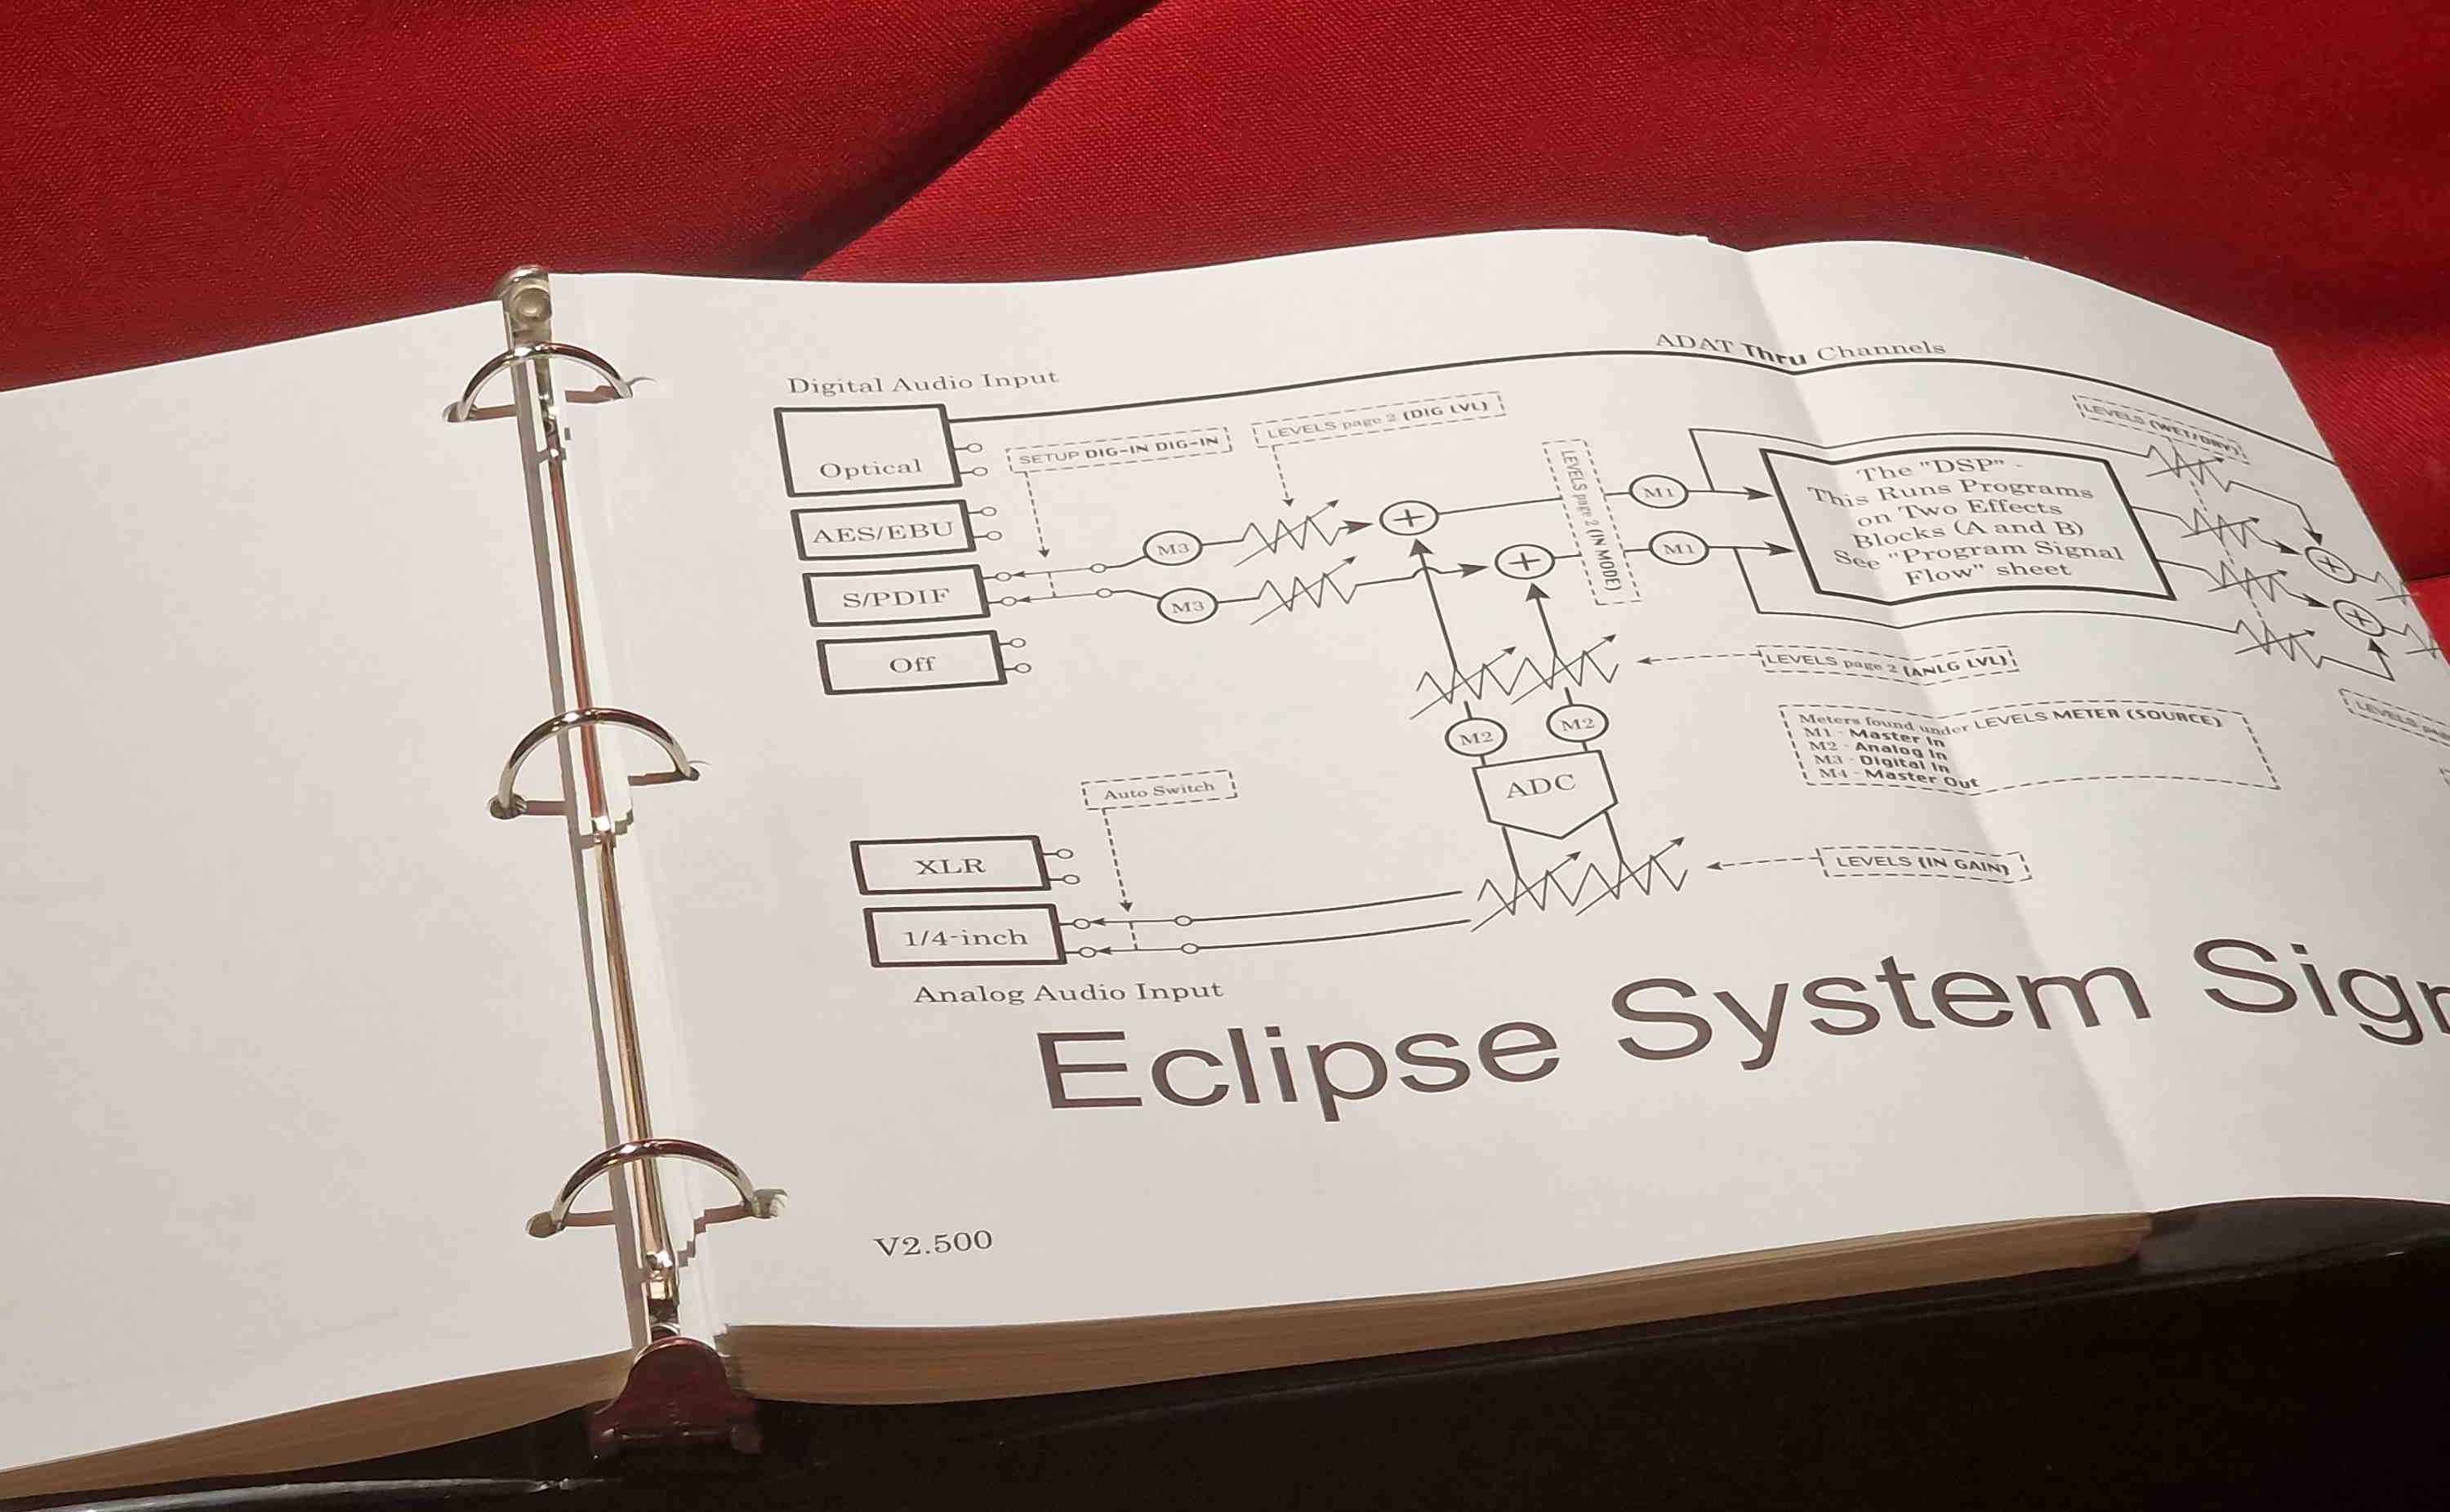 ADAT Thru Channels
Digital Audio Input
Optical
AES/EBU
S/PDIF
Off
SETUP DIG-IN DIG-IN
LEVELS page 2 (DIG LVL)
LEVELS page 2 (IN MODE)
LEVELS (WET/DRY)
M3
M3
+
+
M1
M1
The "DSP" -
This Runs Programs
on Two Effects
Blocks (A and B)
See "Program Signal
Flow" sheet
+
+
LEVELS page 2 (ANLG LVL)
LEVELS
M2
M2
ADC
Meters found under LEVELS METER (SOURCE)
M1 - Master In
M2 - Analog In
M3 - Digital In
M4 - Master Out
Auto Switch
LEVELS (IN GAIN)
XLR
1/4-inch
Analog Audio Input
Eclipse System Sig
V2.500